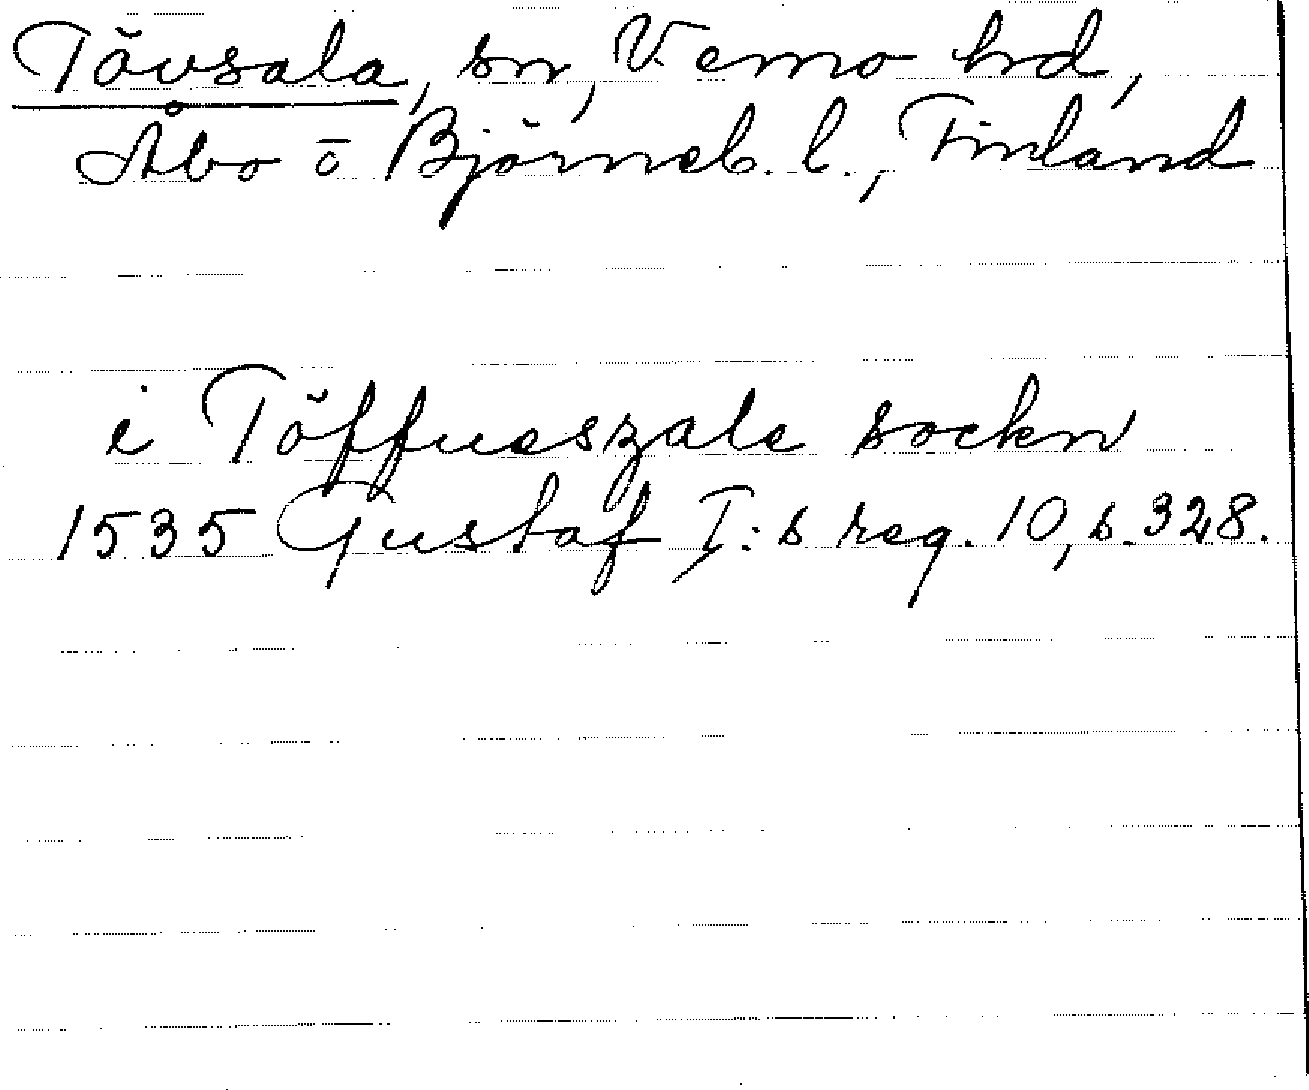 Tövsala, sn, Vemo hd,
Åbo o Björneb. l., Finland
i Töffueszale sockn
1535 Gustaf I:s reg. 10, s. 328.